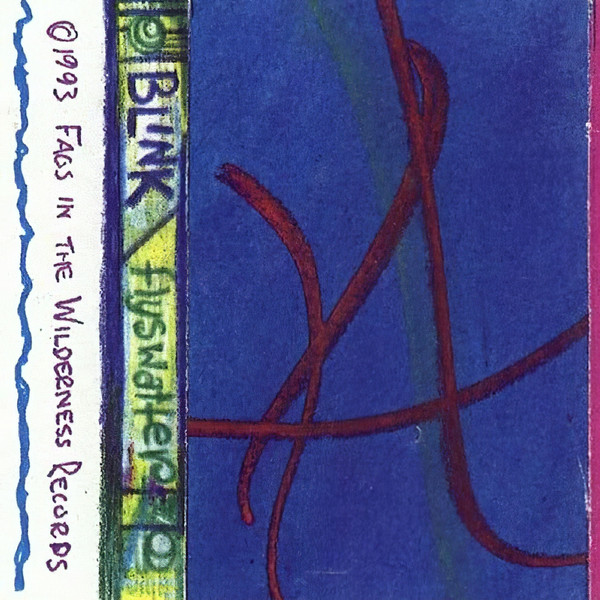 ©1993 FAGS IN THE WILDERNESS RECORDS
BLINK/flyswatter